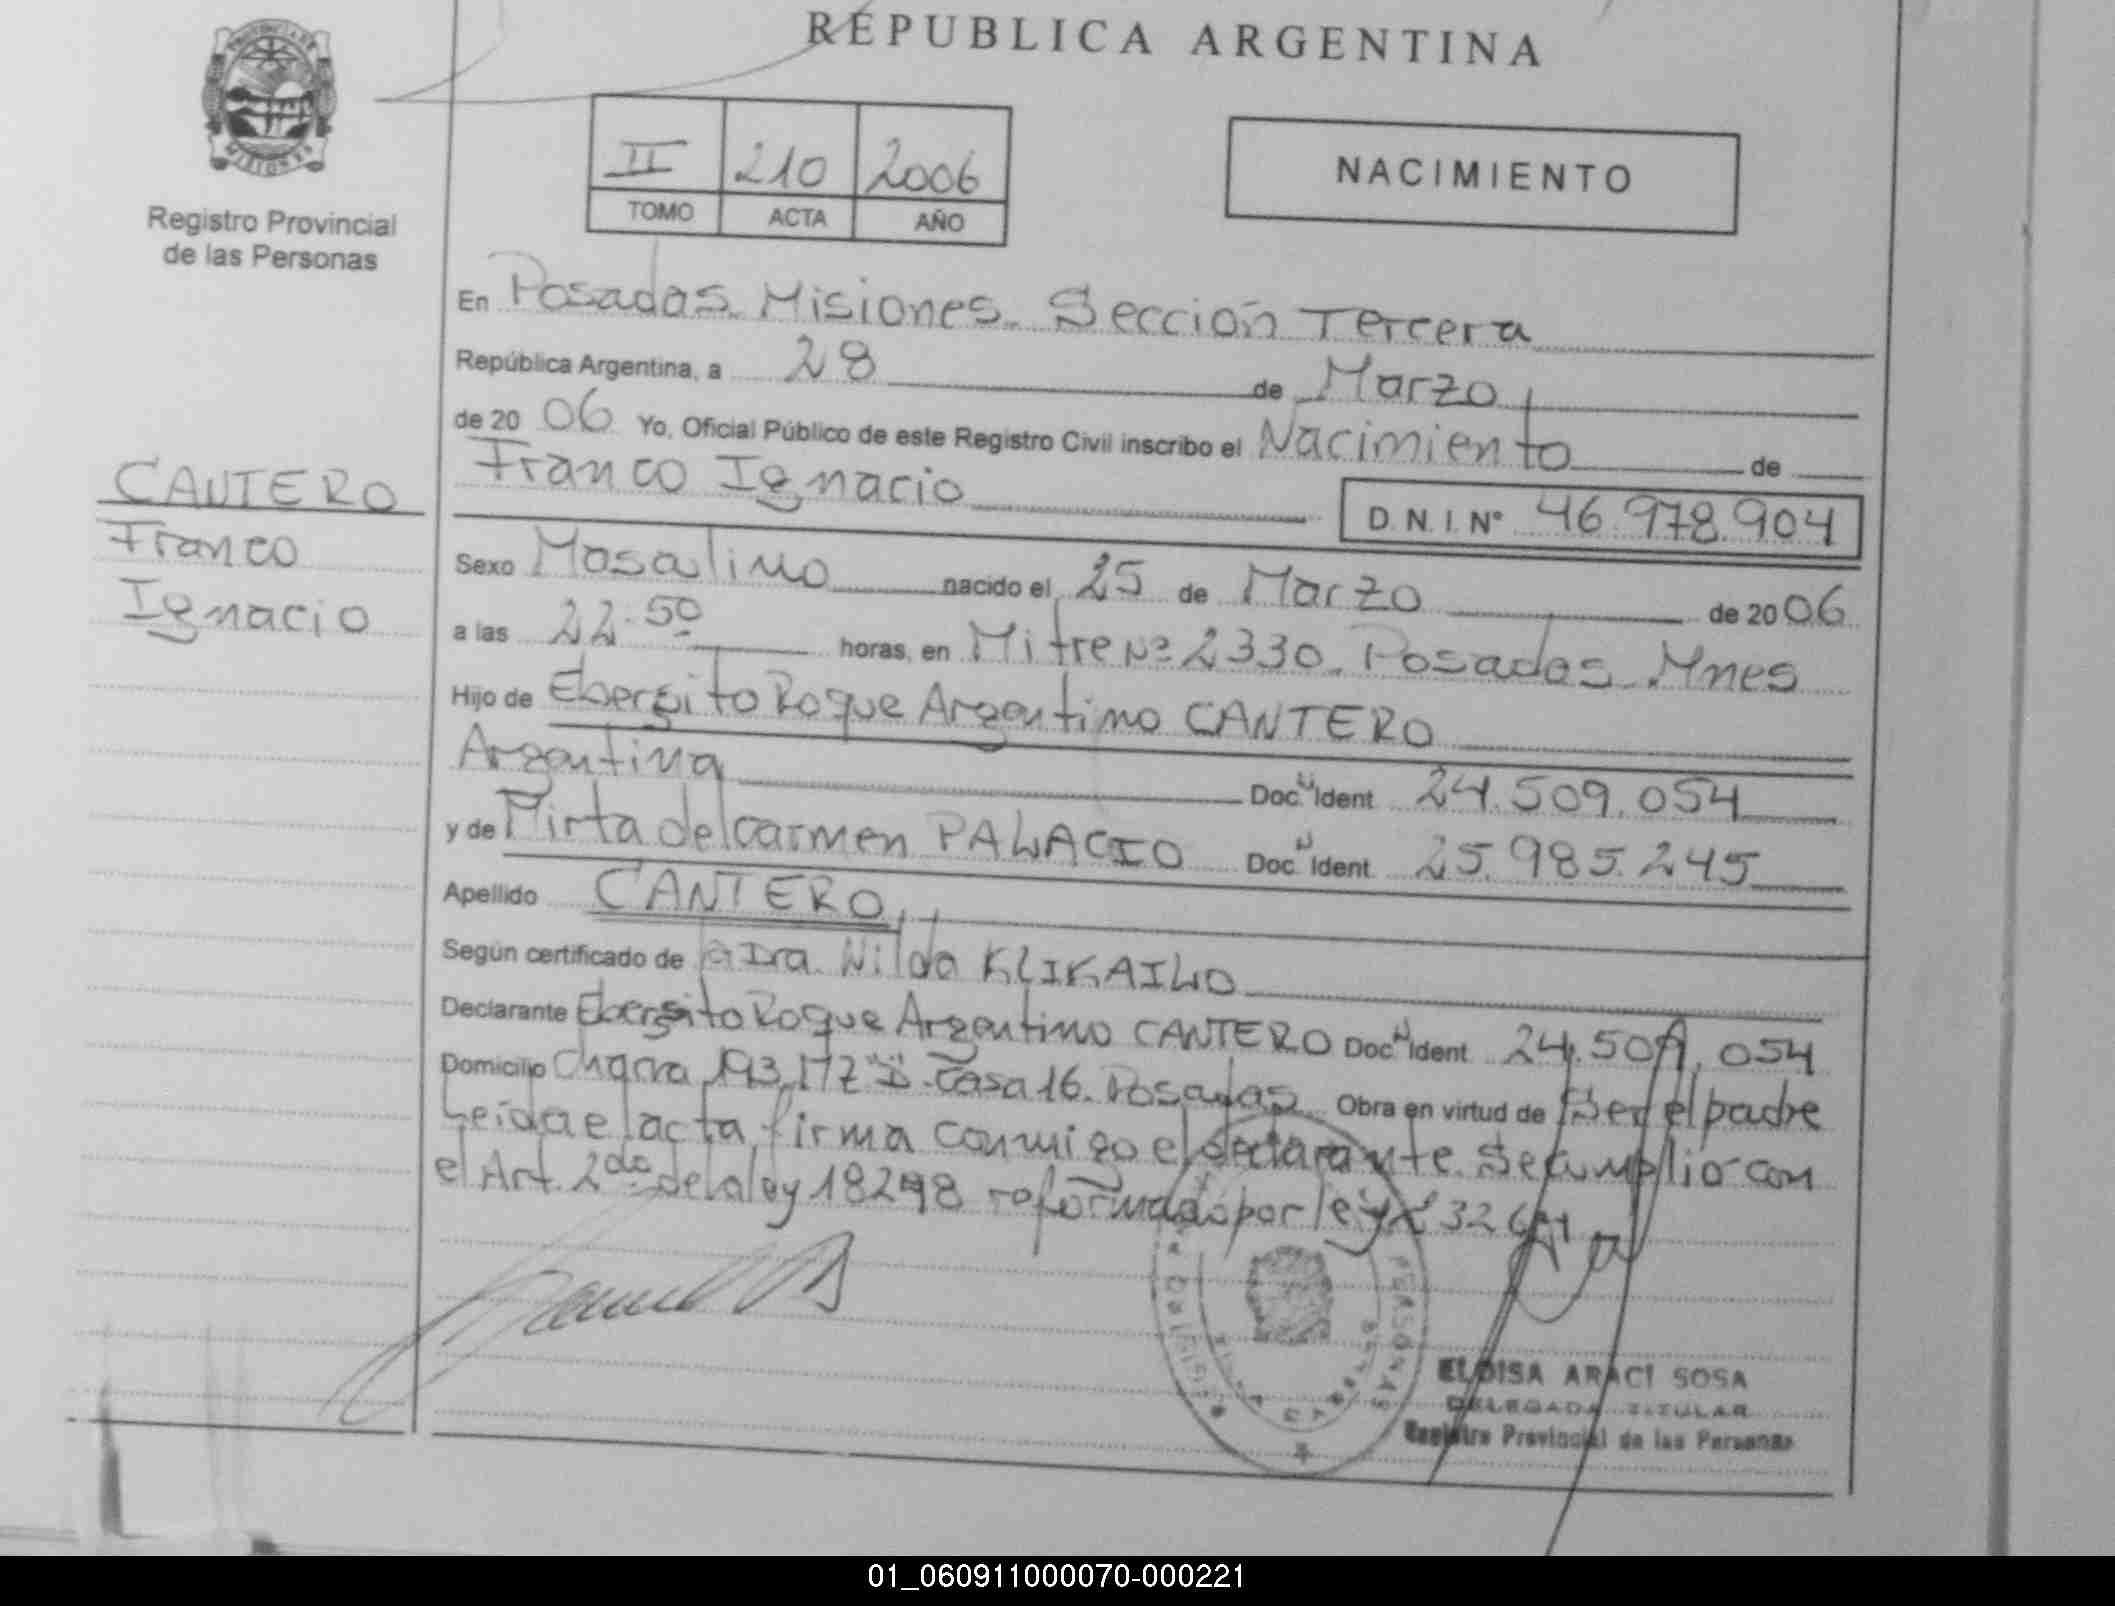 REPUBLICA ARGENTINA
PROVINCIA DE
MISIONES
Registro Provincial
de las Personas
II 210 2006
TOMO ACTA AÑO
NACIMIENTO
En Posadas. Misiones. Sección Tercera
República Argentina, a 28 de Marzo
de 2006 Yo, Oficial Público de este Registro Civil inscribo el Nacimiento de
Franco Ignacio D.N.I.Nº 46.978.904
CANTERO
Franco
Ignacio
Sexo Masculino nacido el 25 de Marzo de 2006
a las 22.50 horas, en Mitre Nº 2330. Posadas. Mnes
Hijo de Ebergito Roque Argentino CANTERO
Argentina Doc. Ident 24.509.054
y de Mirta del carmen PALACIO Doc. Ident 25.985.245
Apellido CANTERO
Según certificado de la Dra. Nilda
Declarante Ebergito Roque Argentino CANTERO Doc. Ident 24.509.054
Domicilio Chacra 193. Mz "D". Casa 16. Posadas. Obra en virtud de Ser el padre
Leída el acta, firma conmigo el declarante. Se cumplió con
el Art. 2do. de la ley 18248 reformado por ley
PERSONAS
ELOISA ARACI SOSA
DELEGADA TITULAR
Registro Provincial de las Personas
01_060911000070-000221